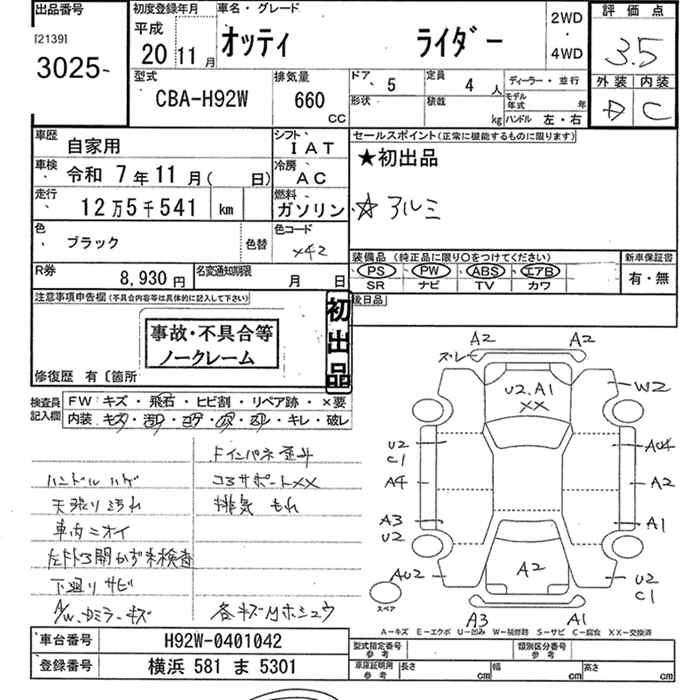 出品番号
[2139]
3025-
初度登録年月
平成
20 11 月
車名・グレード
オッティ ライダー
2WD
・
4WD
評価点
3.5
外装 内装
D C
型式
CBA-H92W
排気量
660
CC
ドア 5
定員 4 人
形状
積載 kg
ディーラー・並行
モデル年式 年
ハンドル 左・右
車歴 自家用
シフト IAT
車検 令和 7年11月( 日)
冷房 AC
走行 12万5千541 km
燃料 ガソリン
色 ブラック
色替
色コード
X42
R券 8,930円
名変通知期限 月 日
セールスポイント(正常に機能するものに限ります)
★初出品
☆アルミ
装備品(純正品に限り○をつけてください)
PS PW ABS エアB
SR ナビ TV カワ
新車保証書
有・無
後日品
注意事項申告欄(不具合内容等は具体的に記入して下さい)
事故・不具合等
ノークレーム
初出品
修復歴 有〔箇所
検査員記入欄
FW キズ・飛石・ヒビ割・リペア跡・×要
内装 キズ・汚レ・コゲ・穴・キレ・破レ
ハンドル ハゲ
天張り 汚れ
車内ニオイ
下廻り サビ
コアサポートXX
排気 もれ
各キズ凹ホシュウ
A2 A2
U2.A1
XX
W2
U2
C1
AU4
A4
A2
A3
U2
A1
AU2
A2
U2
C1
A3 A1
スペア
A−キズ E−エクボ U−凹み W−補修跡 S−サビ C−腐食 XX−交換済
車台番号 H92W-0401042
登録番号 横浜 581 ま 5301
型式指定番号
参考
類別区分番号
参考
車庫証明用
参考
長さ cm
幅 cm
高さ cm